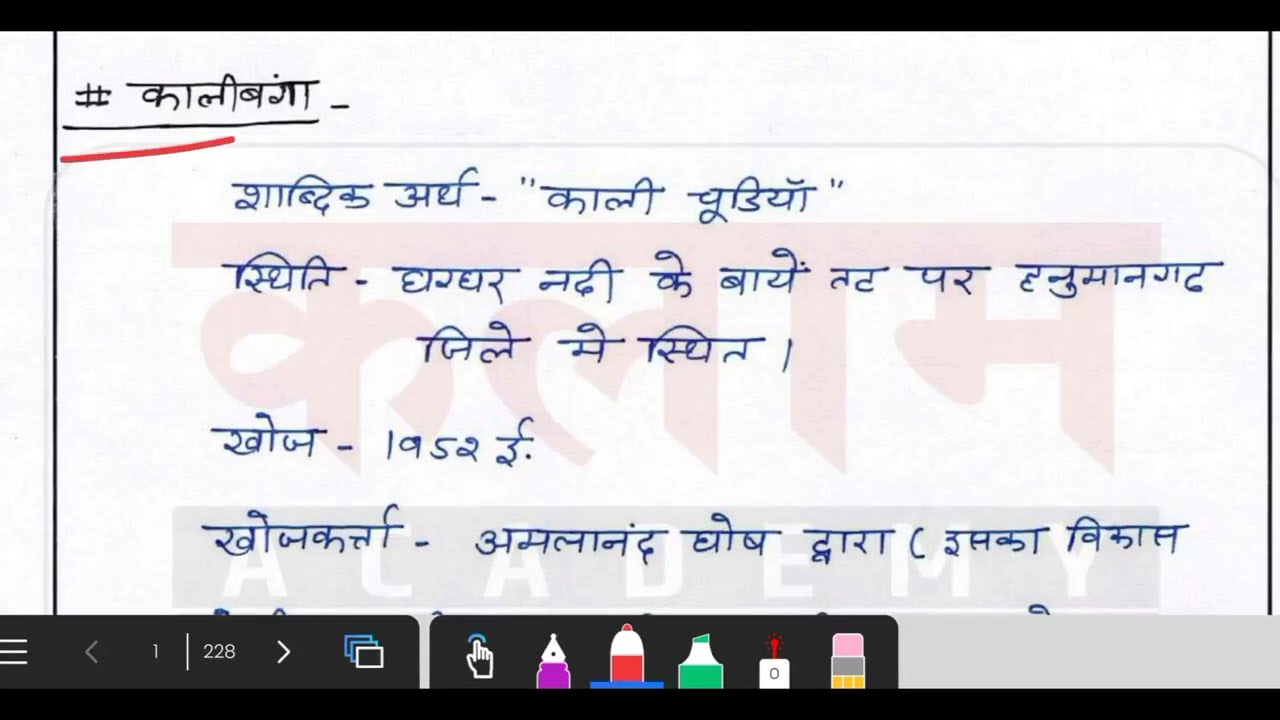 # कालीबंगा -
शाब्दिक अर्थ - "काली चूडियाँ"
स्थिति - घग्घर नदी के बायें तट पर हनुमानगढ
जिले मे स्थित।
खोज - १९५२ ई.
खोजकर्त्ता - अमलानंद घोष द्वारा ( इसका विकास
कलाम
ACADEMY
1 | 228
0